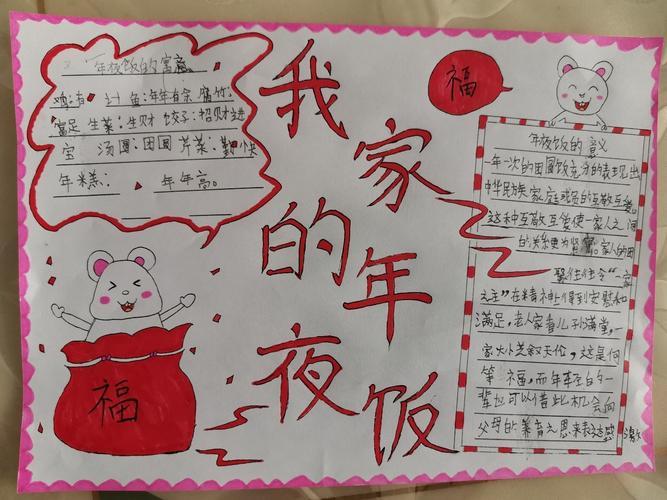 我家的年夜饭
年夜饭的寓意
鸡:有 计 鱼:年年有余 腐竹:
富足 生菜:生财 饺子:招财进
宝 汤圆:团圆 芹菜:勤快
年糕: 年年高。
福
福
年夜饭的意义
一年一次的团圆饭充分的表现出
中华民族家庭成员的互敬互爱。
这种互敬互爱使一家人之间
的关系更为紧密。家人的团
聚往往令“一家
之主”在精神上得到安慰和
满足,老人家看儿子满堂,一
家大小共叙天伦,这是何
等 福,而年轻的一
辈也可以借此机会向
父母的养育之恩来表达感谢